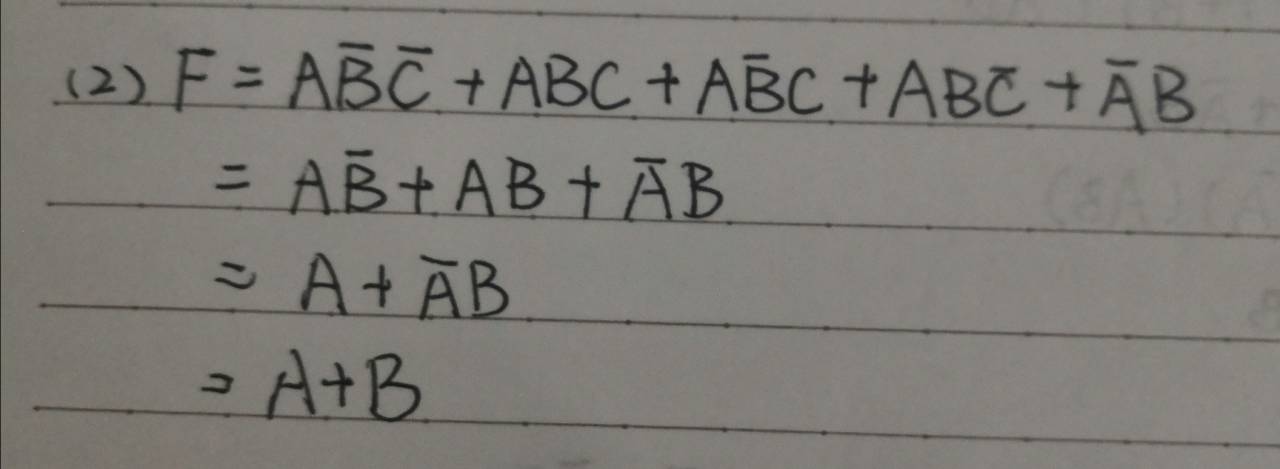 (2) F = AB̅C̅ + ABC + AB̅C + ABC̅ + A̅B
= AB̅ + AB + A̅B
= A + A̅B
= A+B